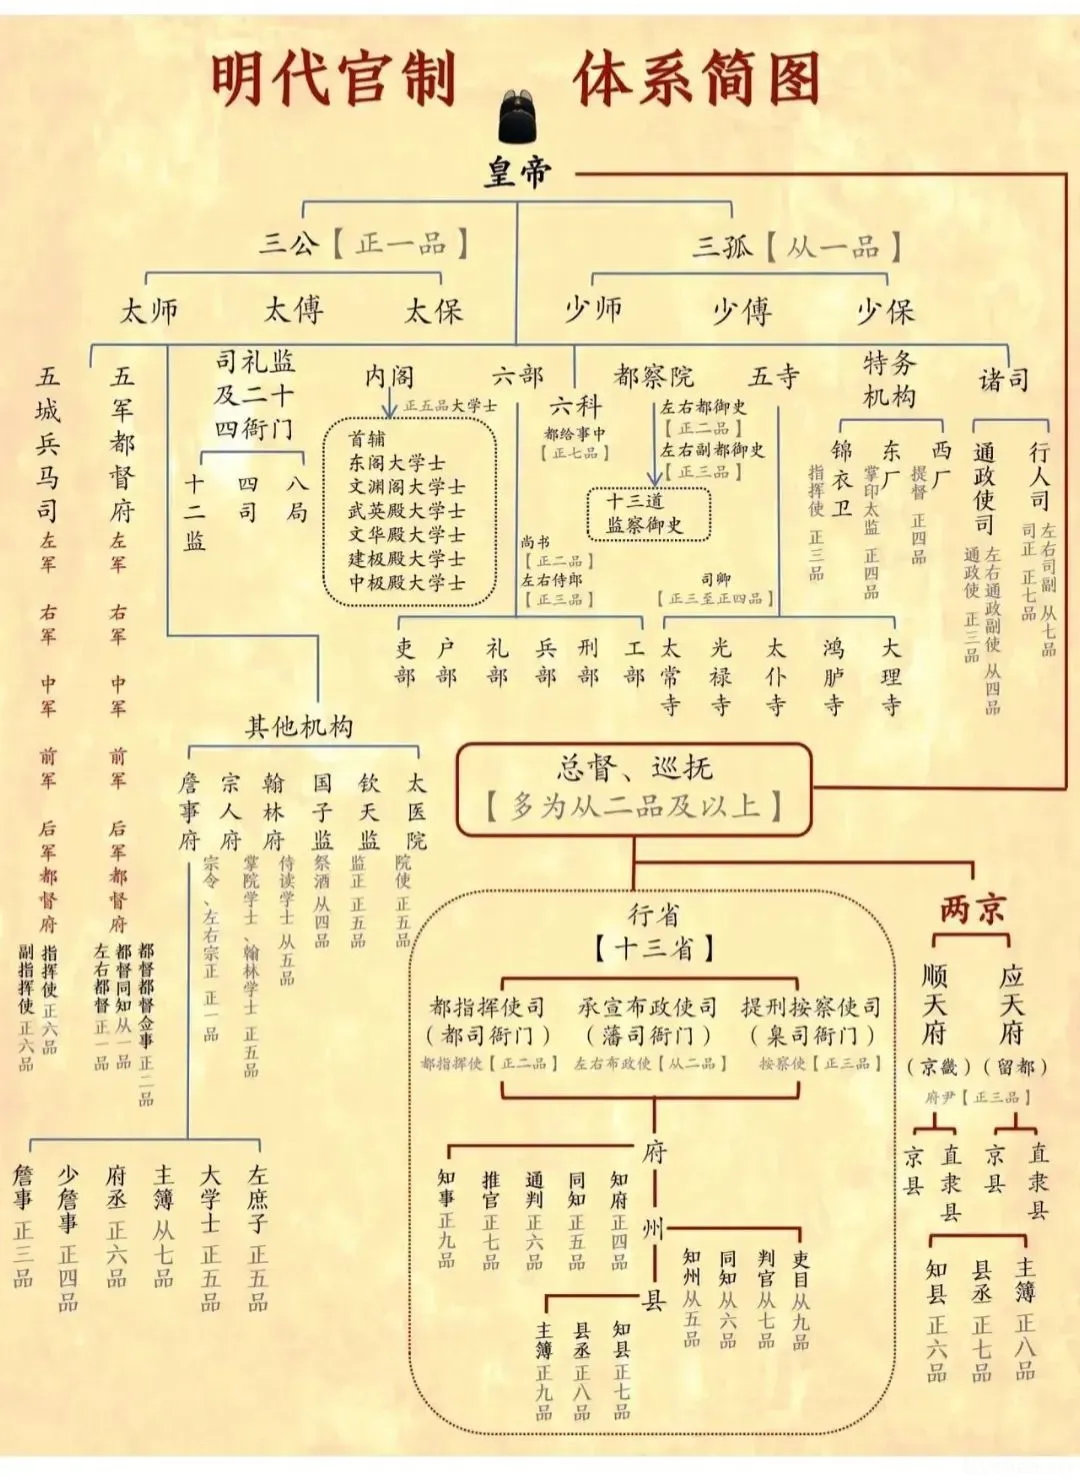 明代官制 体系简图
皇帝
三公【正一品】
三孤【从一品】
太师
太傅
太保
少师
少傅
少保
五城兵马司
左军
右军
中军
前军
后军都督府
指挥使 正六品
副指挥使 正六品
五军都督府
左军
右军
中军
前军
后军都督府
都督都督佥事 正二品
都督同知 从一品
左右都督 正一品
司礼监
及二十
四衙门
十二监
四司
八局
内阁
正五品大学士
首辅
东阁大学士
文渊阁大学士
武英殿大学士
文华殿大学士
建极殿大学士
中极殿大学士
六部
尚书
【正二品】
左右侍郎
【正三品】
吏部
户部
礼部
兵部
刑部
工部
六科
都给事中
【正七品】
都察院
左右都御史
【正二品】
左右副都御史
【正三品】
十三道
监察御史
五寺
司卿
【正三至正四品】
太常寺
光禄寺
太仆寺
鸿胪寺
大理寺
特务
机构
锦衣卫
指挥使 正三品
东厂
掌印太监 正四品
西厂
提督 正四品
诸司
通政使司
左右通政副使 从四品
通政使 正三品
行人司
左右司副 从七品
司正 正七品
其他机构
詹事府
宗人府
宗令、左右宗正 正一品
翰林府
掌院学士、翰林学士 正五品
侍读学士 从五品
国子监
祭酒 从四品
钦天监
监正 正五品
太医院
院使 正五品
詹事 正三品
少詹事 正四品
府丞 正六品
主簿 从七品
大学士 正五品
左庶子 正五品
总督、巡抚
【多为从二品及以上】
行省
【十三省】
都指挥使司
（都司衙门）
都指挥使【正二品】
承宣布政使司
（藩司衙门）
左右布政使【从二品】
提刑按察使司
（臬司衙门）
按察使【正三品】
府
知事 正九品
推官 正七品
通判 正六品
同知 正五品
知府 正四品
州
知州 从五品
同知 从六品
判官 从七品
吏目 从九品
县
主簿 正九品
县丞 正八品
知县 正七品
两京
顺天府
（京畿）
应天府
（留都）
府尹【正三品】
京县
直隶县
京县
直隶县
知县 正六品
县丞 正七品
主簿 正八品